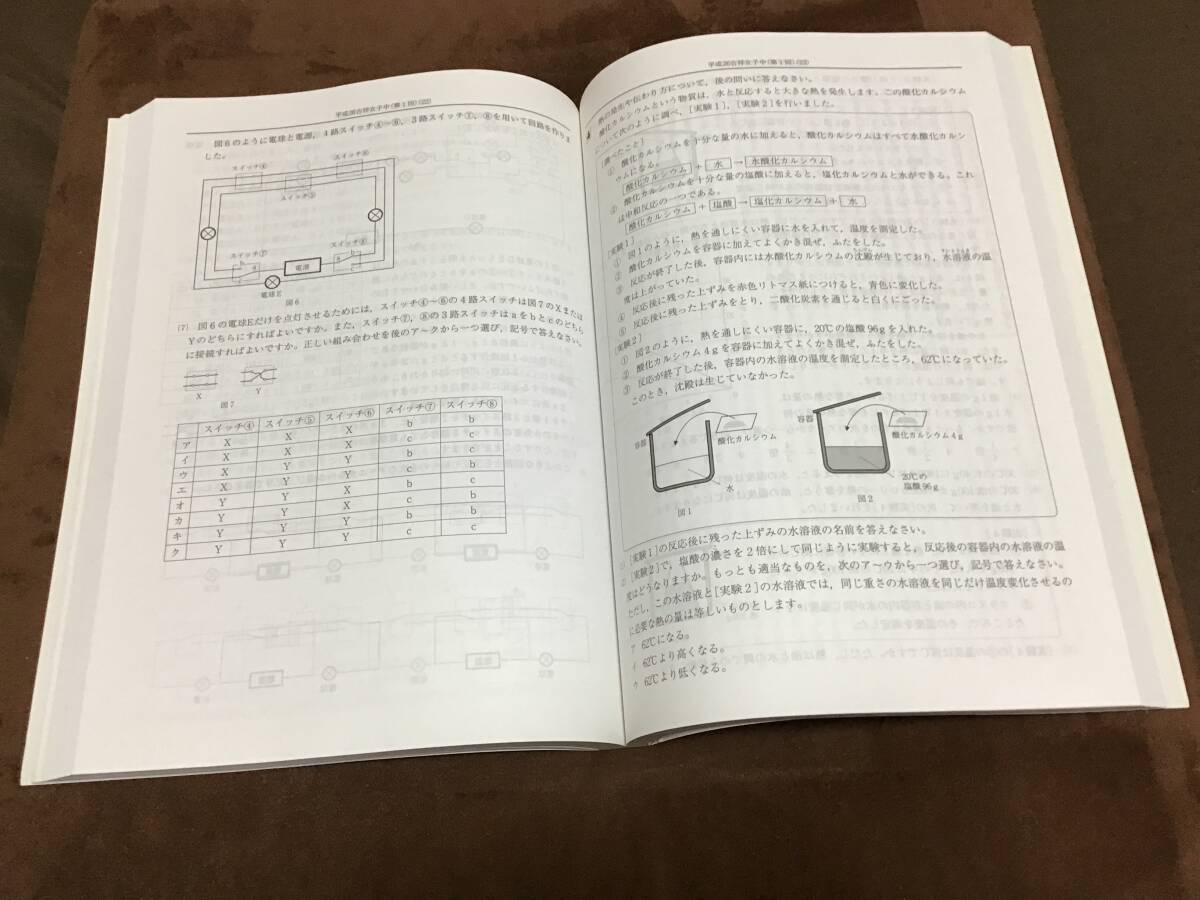 平成26吉祥女子中(第1回)(22)
図6のように電球と電源，4路スイッチ④~⑥，3路スイッチ⑦，⑧を用いて回路を作りま
した。
スイッチ④
スイッチ⑥
スイッチ⑤
スイッチ⑦
スイッチ⑧
電源
電球E
図6
(7) 図6の電球Eだけを点灯させるためには，スイッチ④~⑥の4路スイッチは図7のXまたは
Yのどちらにすればよいですか。また，スイッチ⑦，⑧の3路スイッチはaをbとcのどちら
に接続すればよいですか。正しい組み合わせを後のア~クから一つ選び，記号で答えなさい。
X Y
図7
スイッチ④ スイッチ⑤ スイッチ⑥ スイッチ⑦ スイッチ⑧
ア X X X b b
イ X X X c c
ウ X Y Y b c
エ X Y Y c b
オ Y Y X b c
カ Y Y X c b
キ Y Y Y b b
ク Y Y Y c c
平成26吉祥女子中(第1回)(23)
熱の発生や伝わり方について，後の問いに答えなさい。
酸化カルシウムという物質は，水と反応すると大きな熱を発生します。この酸化カルシウム
について次のように調べ，[実験1]，[実験2]を行いました。
[調べたこと]
① 酸化カルシウムを十分な量の水に加えると，酸化カルシウムはすべて水酸化カルシ
ウムになる。
酸化カルシウム + 水 → 水酸化カルシウム
② 酸化カルシウムを十分な量の塩酸に加えると，塩化カルシウムと水ができる。これ
は中和反応の一つである。
酸化カルシウム + 塩酸 → 塩化カルシウム + 水
[実験1]
① 図1のように，熱を通しにくい容器に水を入れて，温度を測定した。
② 酸化カルシウムを容器に加えてよくかき混ぜ，ふたをした。
③ 反応が終了した後，容器内には水酸化カルシウムの沈殿が生じており，水溶液の温
度は上がっていた。
④ 反応後に残った上ずみを赤色リトマス紙につけると，青色に変化した。
⑤ 反応後に残った上ずみをとり，二酸化炭素を通じると白くにごった。
[実験2]
① 図2のように，熱を通しにくい容器に，20℃の塩酸96gを入れた。
② 酸化カルシウム4gを容器に加えてよくかき混ぜ，ふたをした。
③ 反応が終了した後，容器内の水溶液の温度を測定したところ，62℃になっていた。
このとき，沈殿は生じていなかった。
容器
酸化カルシウム
水
図1
容器
酸化カルシウム4g
20℃の
塩酸96g
図2
[実験1]の反応後に残った上ずみの水溶液の名前を答えなさい。
[実験2]で，塩酸の濃さを2倍にして同じように実験すると，反応後の容器内の水溶液の温
度はどうなりますか。もっとも適当なものを，次のア~ウから一つ選び，記号で答えなさい。
ただし，この水溶液と[実験2]の水溶液では，同じ重さの水溶液を同じだけ温度変化させるの
に必要な熱の量は等しいものとします。
ア 62℃になる。
イ 62℃より高くなる。
ウ 62℃より低くなる。